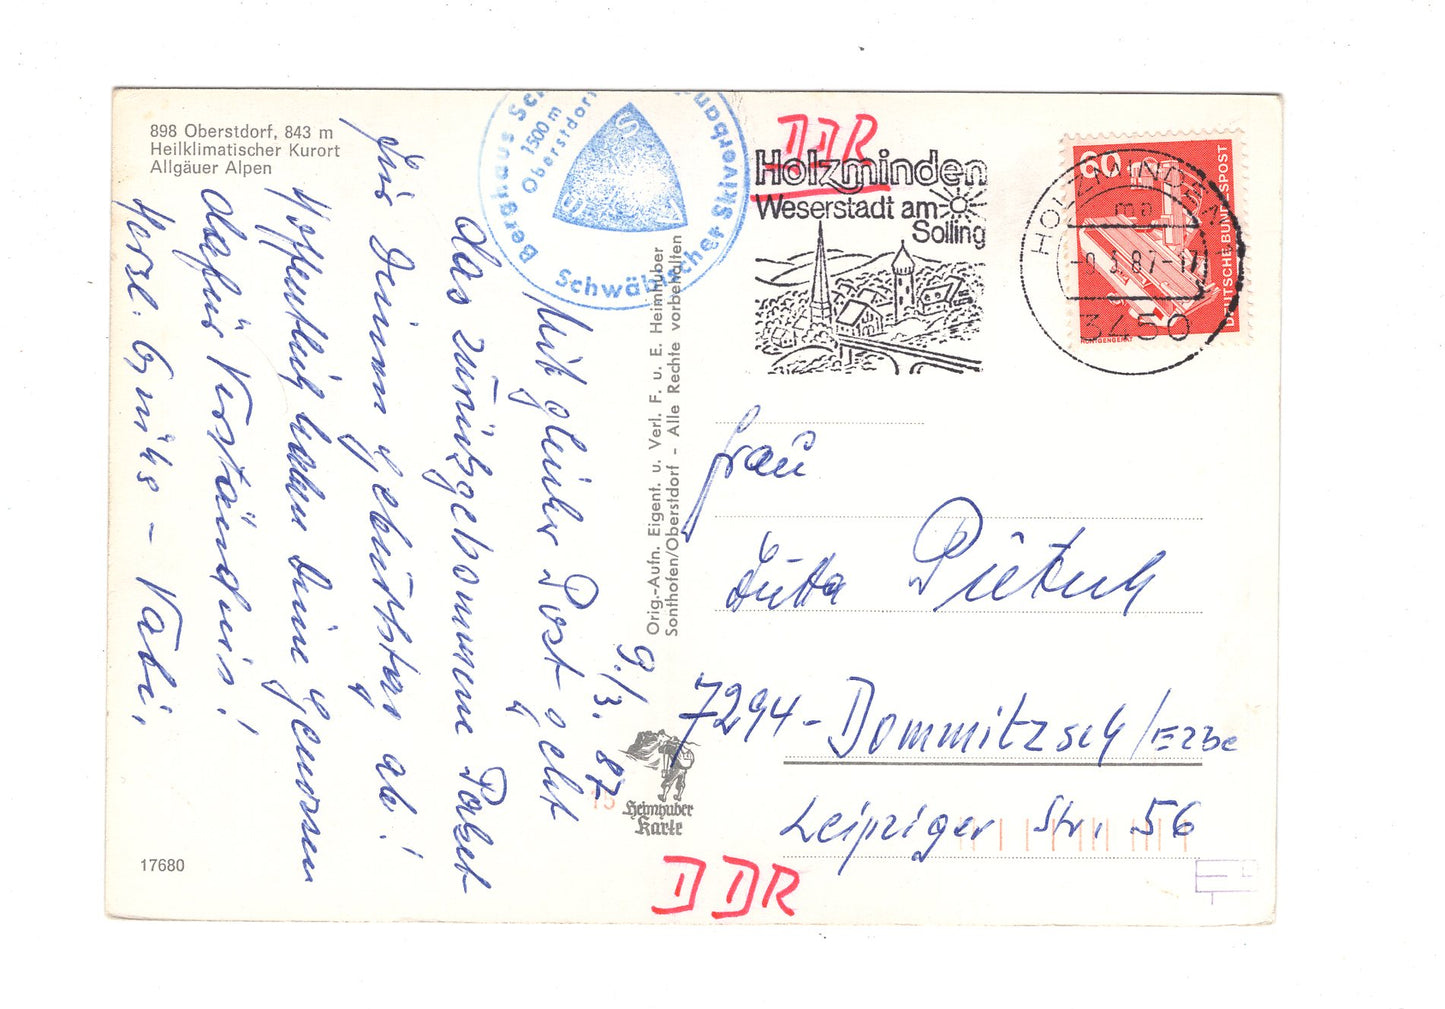 898 Oberstdorf, 843 m
Heilklimatischer Kurort
Allgäuer Alpen
9./3. 87
Mit gleicher Post geht
das zurückgekommene Paket
für Deinen Geburtstag ab!
Hoffentlich haben Deine Genossen
dafür Verständnis!
Herzl. Grüße –
Orig.-Aufn. Eigent. u. Verl. F. u. E. Heimhuber
Sonthofen/Oberstdorf - Alle Rechte vorbehalten
Heimhuber
Karte
17680
15
Berghaus
1500 m
Oberstdorf
Schwäbischer Skiverband
SSV
DDR
Holzminden
Weserstadt am
Solling
HOLZMINDEN
ma
-9.3.87-17
3450
60
DEUTSCHE BUNDESPOST
RÖNTGENGERÄT
Frau
Jutta
7294 - Dommitzsch/Elbe
Leipziger Str. 56
DDR